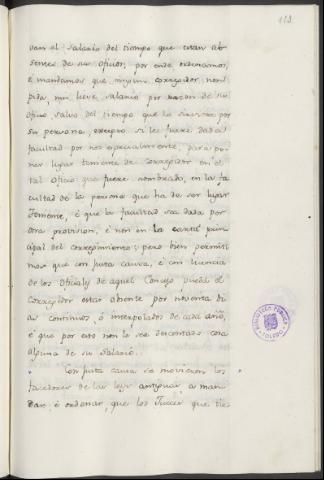 113
van el salario del tiempo que estan ab
sentes de sus oficios; por ende ordenamos,
e mandamos que ningun corregidor, non
pida, nin lieve salario por razon de su
oficio salvo del tiempo que lo sirviere por
su persona, excepto si le fuere dada
facultad por nos especialmente, para po
ner lugar teniente de corregidor en el
tal oficio que fuere nombrado, en la fa
cultad de la persona que ha de ser lugar
Teniente, é que la facultad sea dada por
otra provision, é non en la carta prin
cipal del corregimiento; pero bien permiti
mos que con justa causa, é con licencia
de los oficiales de aquel Concejo pueda el
corregidor estar absente por noventa di
as continuos, ó interpolados de cada año,
é que por esto non le sea descontado cosa
alguna de su salario.
Con justa causa se movieron los
facedores de las leyes antiguas a man
dar, é ordenar, que los Jueces que tie
BIBLIOTECA PUBLICA
TOLEDO